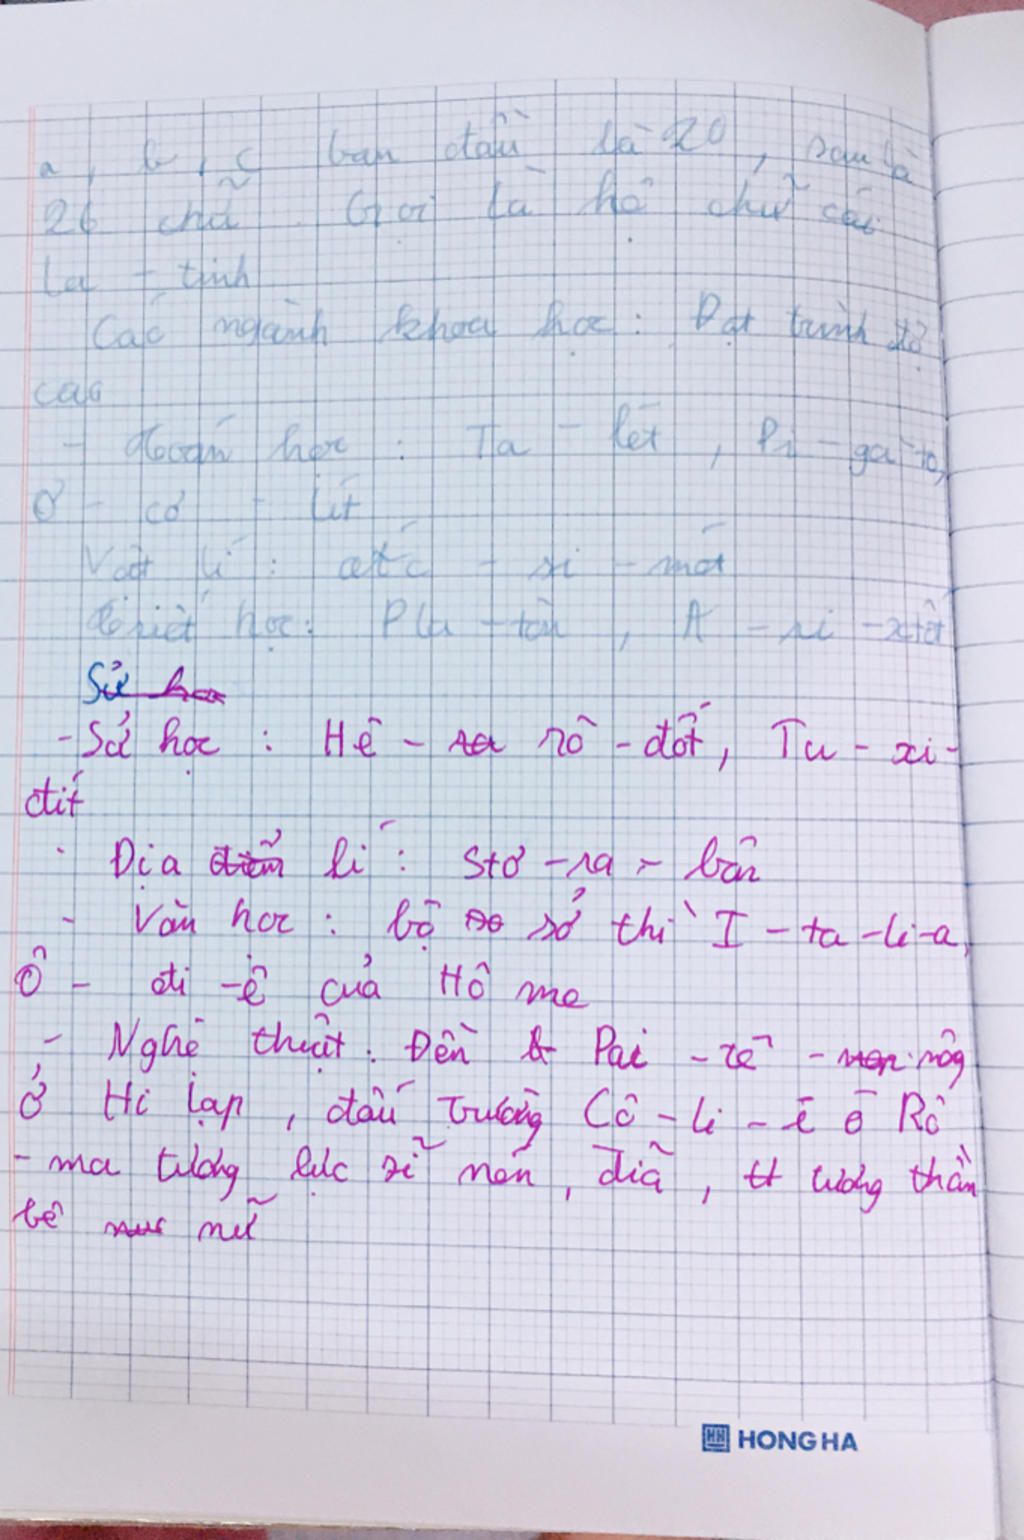 a, b, c ban đầu là 20, sau là
26 chữ. Gọi là hệ chữ cái
La - tinh
Các ngành khoa học: Đạt trình độ
cao
- Toán học: Ta - lét, Pi - ga - to,
Ơ - cơ - lít
Vật lí: - si - mét
Triết học: Pla - tôn, A - ri - xtốt
Sử
- Sử học: Hê - rô - đốt, Tu - xi -
đít
- Địa lí: Stơ - ra - bôn
- Văn học: bộ sử thi I - ta - li - a,
Ô - đi - ê của Hô me
- Nghệ thuật: Đền Pai - tê - nông
ở Hi Lạp, đấu trường Cô - li - ê ở Rô
- ma tượng lực sĩ nén đĩa, tượng thần
vệ nữ
HONG HA